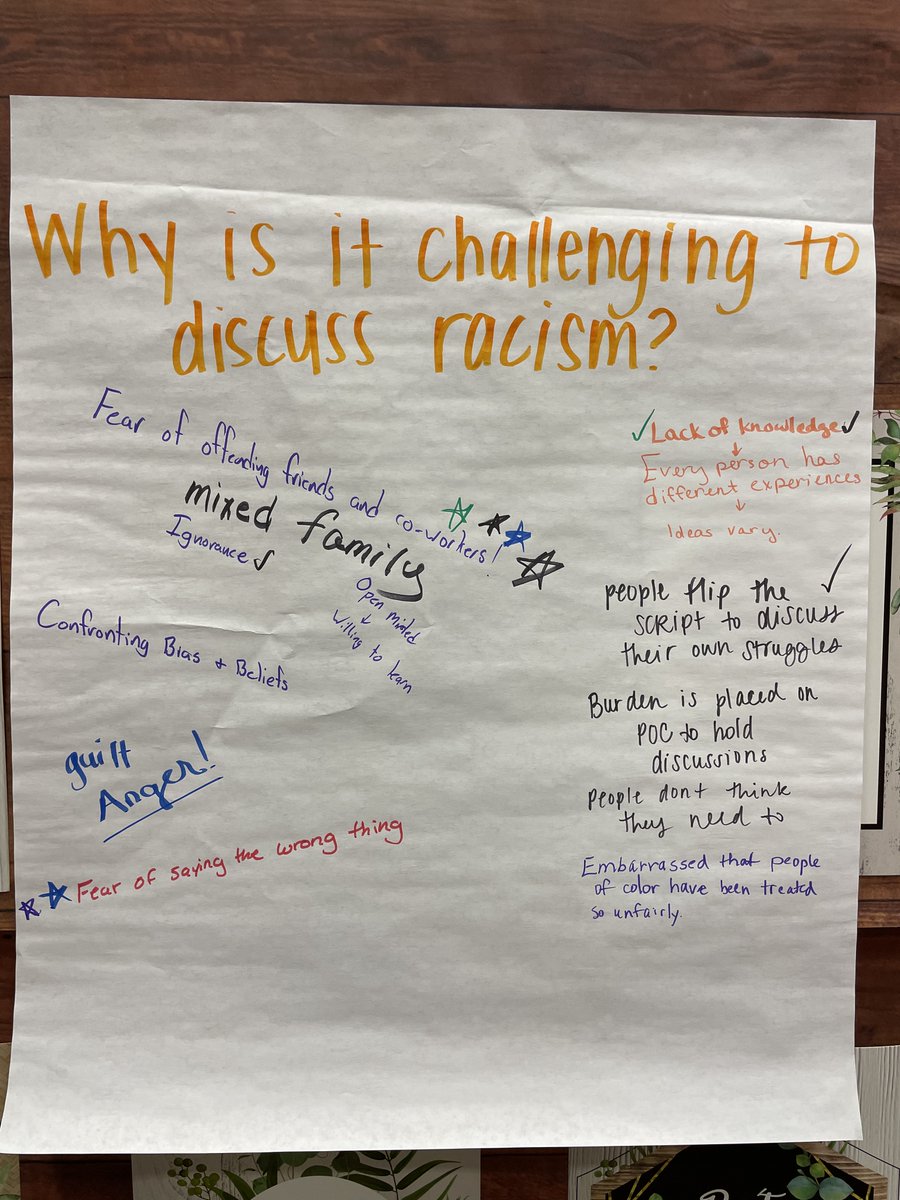 Why is it challenging to
discuss racism?
Fear of offending friends and co-workers!
mixed family
Ignorance
Open minded
Willing to learn
Confronting Bias + Beliefs
guilt
Anger!
Fear of saying the wrong thing
Lack of knowledge
Every person has
different experiences
Ideas vary.
people flip the
script to discuss
their own struggles
Burden is placed on
POC to hold
discussions
People don't think
they need to
Embarrassed that people
of color have been treated
so unfairly.